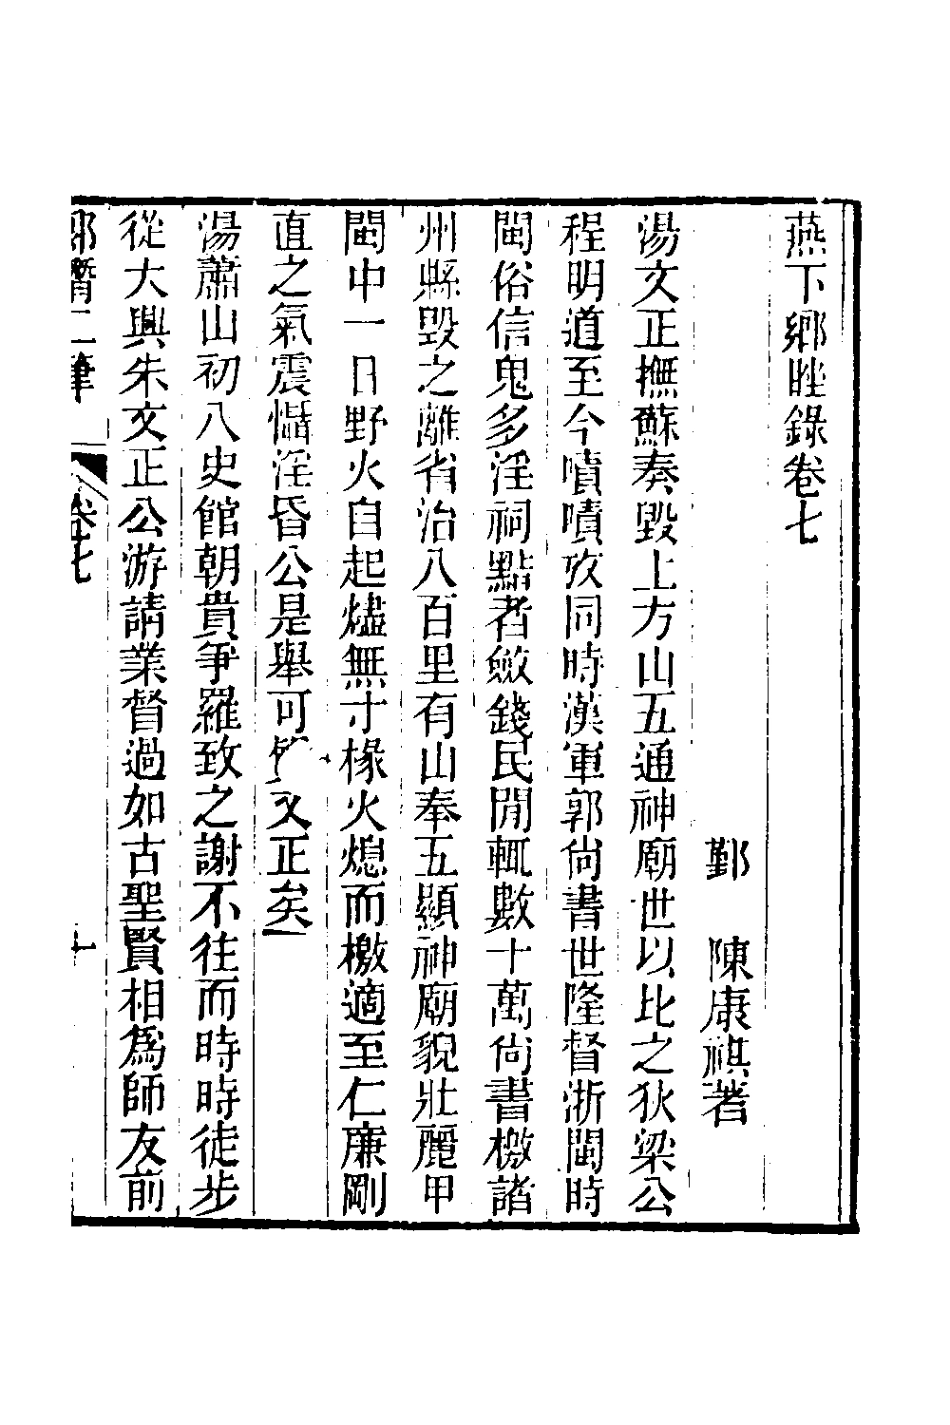 燕下鄉脞錄卷七
鄞　陳康祺著
湯文正撫蘇奏毀上方山五通神廟世以比之狄梁公
程明道至今嘖嘖攷同時漢軍郭尙書世隆督浙閩時
閩俗信鬼多淫祠點者斂錢民閒輒數十萬尙書檄諸
州縣毀之離省治八百里有山奉五顯神廟貌壯麗甲
閩中一日野火自起燼無寸椽火熄而檄適至仁廉剛
直之氣震懾淫昏公是舉可 文正矣
湯蕭山初入史館朝貴爭羅致之謝不往而時時徒步
從大興朱文正公游請業督過如古聖賢相爲師友前
郎潛二筆　卷七　一